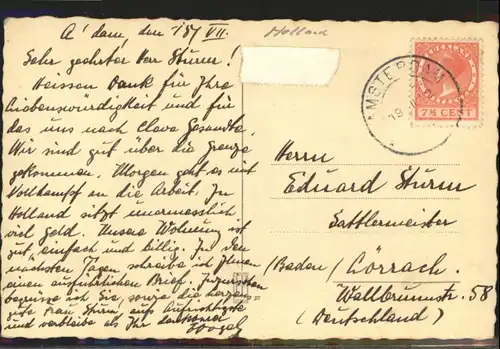 A'dam den 15/VII.
Sehr geehrter Herr Sturm!
Heissen Dank für Ihre
Liebenswürdigkeit und für
das uns nach Cleve Gesandte.
Wir sind gut über die Grenze
gekommen. Morgen geht es mit
Volldampf an die Arbeit. In
Holland sitzt unermesslich
viel Geld. Unsere Wohnung ist
gut, einfach und billig. In den
nächsten Tagen schreibe ich Ihnen
einen ausführlichen Brief. Inzwischen
begrüsse ich Sie, sowie die herzens-
gute Frau Sturm, aufs Aufrichtigste
und verbleibe als Ihr dankbarer
Holland
AMSTERDAM
7½ CENT
Herrn
Eduard Sturm
Sattlermeister
(Baden) Lörrach.
Wallbrunnstr. 58
(Deutschland)